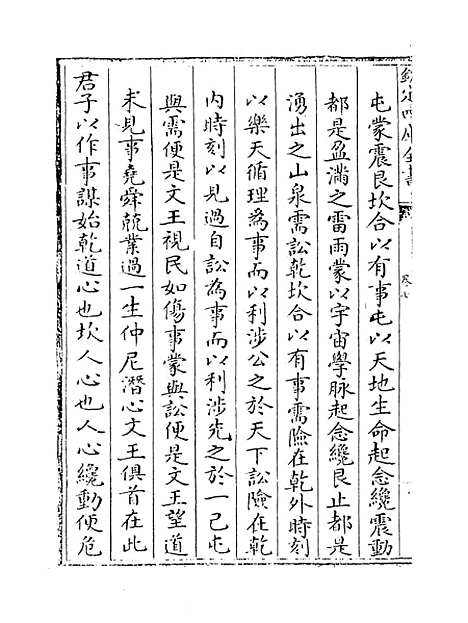 欽定四庫全書
卷七
屯蒙震艮坎合以有事屯以天地生命起念纔震動
都是盈滿之雷雨蒙以宇宙學脉起念纔艮止都是
湧出之山泉需訟乾坎合以有事需險在乾外時刻
以樂天循理為事而以利涉公之於天下訟險在乾
内時刻以見過自訟為事而以利涉先之於一己屯
與需便是文王視民如傷事蒙與訟便是文王望道
未見事堯舜兢業過一生仲尼潛心文王俱首在此
君子以作事謀始乾道心也坎人心也人心纔動便危